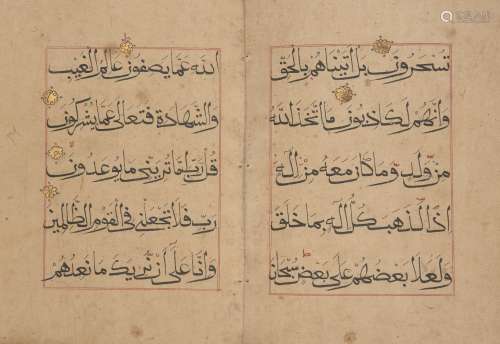 تسحرون بل اتيناهم بالحق
وانهم لكاذبون ما اتخذ الله
من ولد وما كان معه من اله
اذا لذهب كل اله بما خلق
ولعلا بعضهم على بعض سبحان
الله عما يصفون عالم الغيب
والشهادة فتعالى عما يشركون
قل رب اما ترينى ما يوعدون
رب فلا تجعلنى فى القوم الظالمين
وانا على ان نريك ما نعدهم